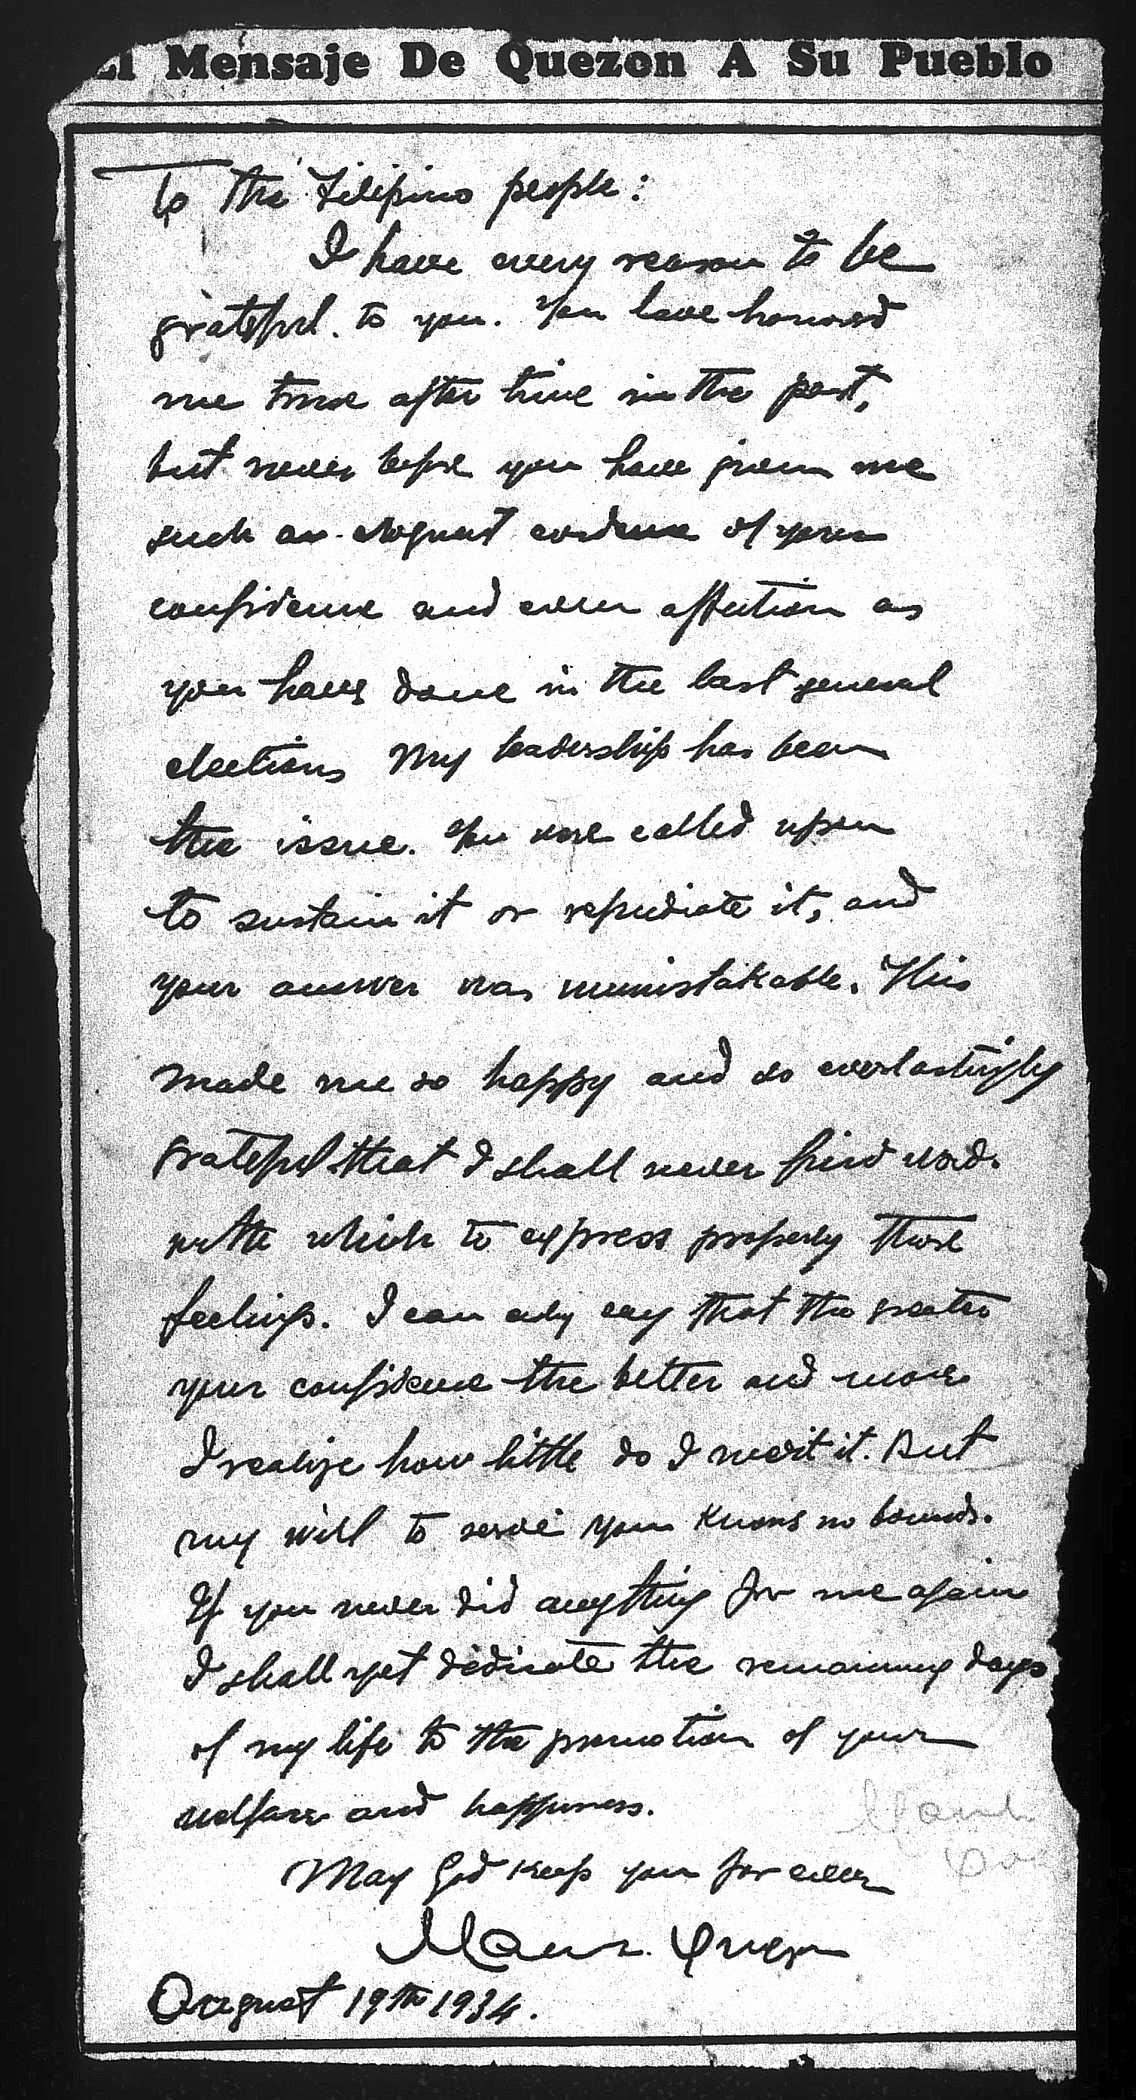 El Mensaje De Quezon A Su Pueblo
To the Filipino people:
I have every reason to be
grateful to you. You have honored
me time after time in the past,
but never before you have given me
such an eloquent evidence of your
confidence and even affection as
you have done in the last general
elections My leadership has been
the issue. You were called upon
to sustain it or repudiate it, and
your answer was unmistakable. This
made me so happy and so everlastingly
grateful that I shall never find words
with which to express properly those
feelings. I can only say that the greater
your confidence the better and more
I realize how little do I merit it. But
my will to serve you knows no bounds.
If you never did anything for me again
I shall yet dedicate the remaining days
of my life to the promotion of your
welfare and happiness.
May God keep you for ever
Manuel Quezon
August 19th 1934.